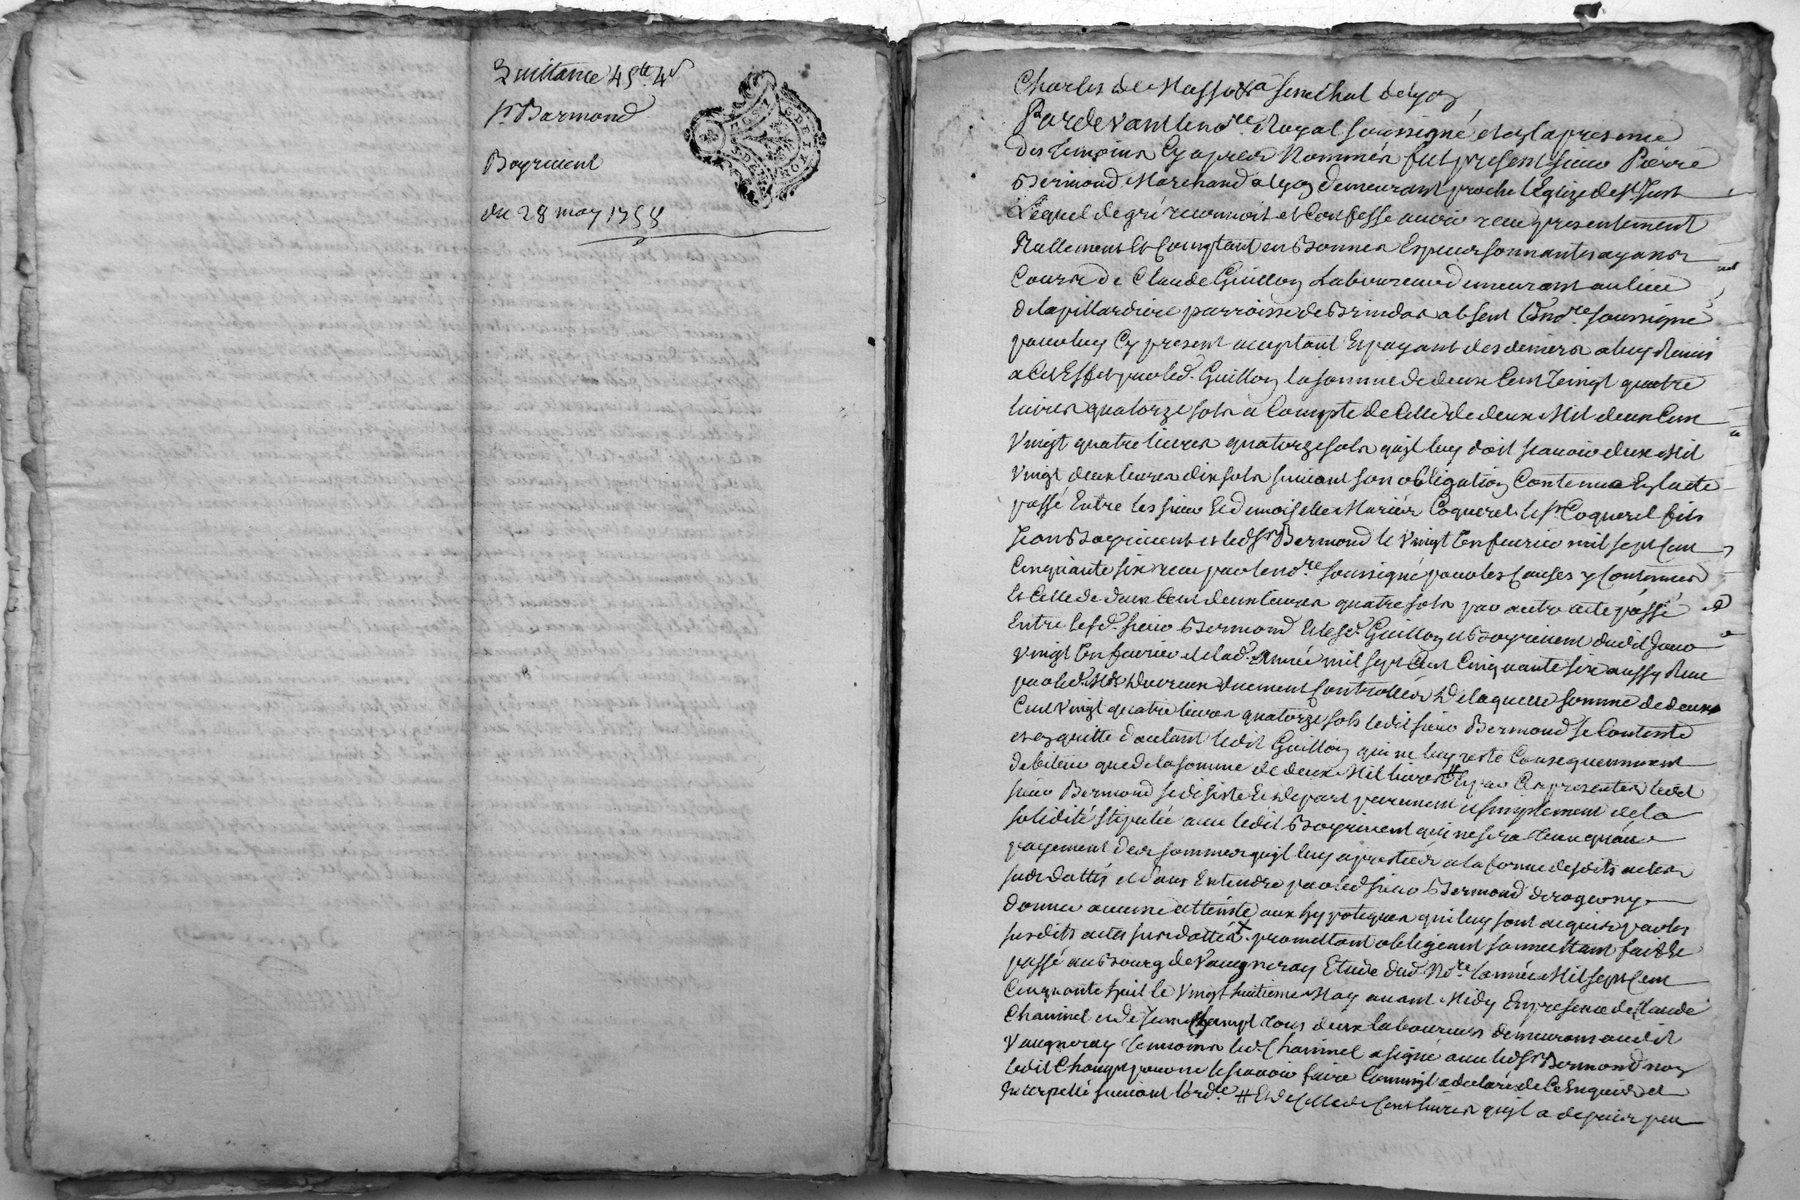 Quittance 45# 4s
Sr Barmond
Boyrivent
du 28 may 1758
Charles de Masso senechal de lyon
Pardevant le nore Royal soussigné et en la presence
des temoins cy apres Nommés fut present sieur Pierre
Bermond Marchand a lyon demeurant proche l'Eglize de St Just
Lequel de gré reconnoit et Confesse auoir receu presentement
Réallement Et Comptant en Bonnes Especes sonnantes ayans
Cours de Claude Guillon Laboureur demeurant au lieu
de la pillardiere parroisse de Brindas absent led nore soussigné
pour luy Cy present acceptant Et payant des deniers a luy Remis
a Cet Effet par led. Guillon la somme de deux Cent Vingt quatre
livres quatorze sols a Compte de Celle de deux Mil deux Cent
Vingt quatre livres quatorze sols qu'il luy doit scauoir deux Mil
Vingt deux livres dix sols suiuant son obligation Contenue En l'acte
passé Entre les sieur Et demoiselle Mariés Coquerel le sr Coquerel fils
Jean Boyrivent et led Sr Bermond le Vingt Un feurier mil sept Cent
Cinquante six receu par le nore soussigné pour les Causes y Contenues
Et Celle de deux Cent deux livres quatre sols par autre acte passé
Entre led. sieur Bermond led. Guillon et Boyrivent dudit Jour
Vingt Un feurier et lad. Année mil sept Cent Cinquante six aussy Receu
par led. Me duement Controllés de laquelle somme de deux
Cent Vingt quatre livres quatorze sols ledit sieur Bermond se Contente
et en quitte d'autant ledit Guillon qui ne luy reste Consequemment
debiteur que de la somme de deux Mil livres # Et par Ces presentes ledit
sieur Bermond se desiste Et depart purement et simplement de la
solidité stipulée auec ledit Boyrivent qui ne sera tenu qu'au
payement des sommes qu'il luy a prestées a la forme desdits actes
sus dattés et sans Entendre par led sieur Bermond deroger ny
donner aucune atteinte aux hypoteques qui luy sont acquis par les
susdits actes sus dattés promettant obligeant soumettant fait Et
passé au Bourg de Vaugneray Etude dud Nore l'année Mil sept Cent
Cinquante huit le Vingt huitieme May auant Midy En presence de Claude
Chaninel et de Jean tous deux laboureurs demeurans audit
Vaugneray temoins led. Chaninel a signé auec led Sr Bermond non
ledit pour ne le scauoir faire Comme il a declaré de Ce Enquis et
Interpellé suiuant l'ord.ce # Et de Celle de Cent livres qu'il a depuis peu